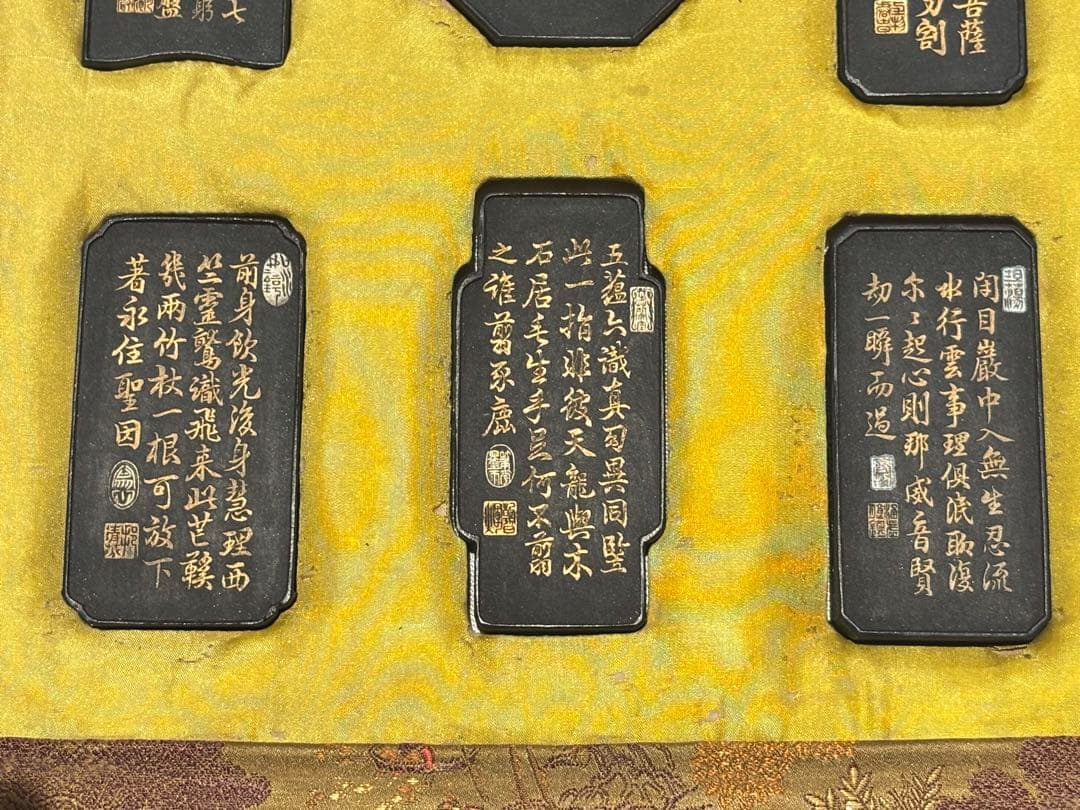 菩薩
割
七
躬
盤
閉目巖中入無生忍流
水行雲事理俱泯聊復
尔〻起心則那威音賢
劫一瞬而過
五蘊六識真異同豎
此一指非天龍與木
石居毛生手足何不翦
之誰翦
前身飲光後身慧理西
竺靈鷲識飛来此芒鞵
幾兩竹杖一根可放下
著永住聖因